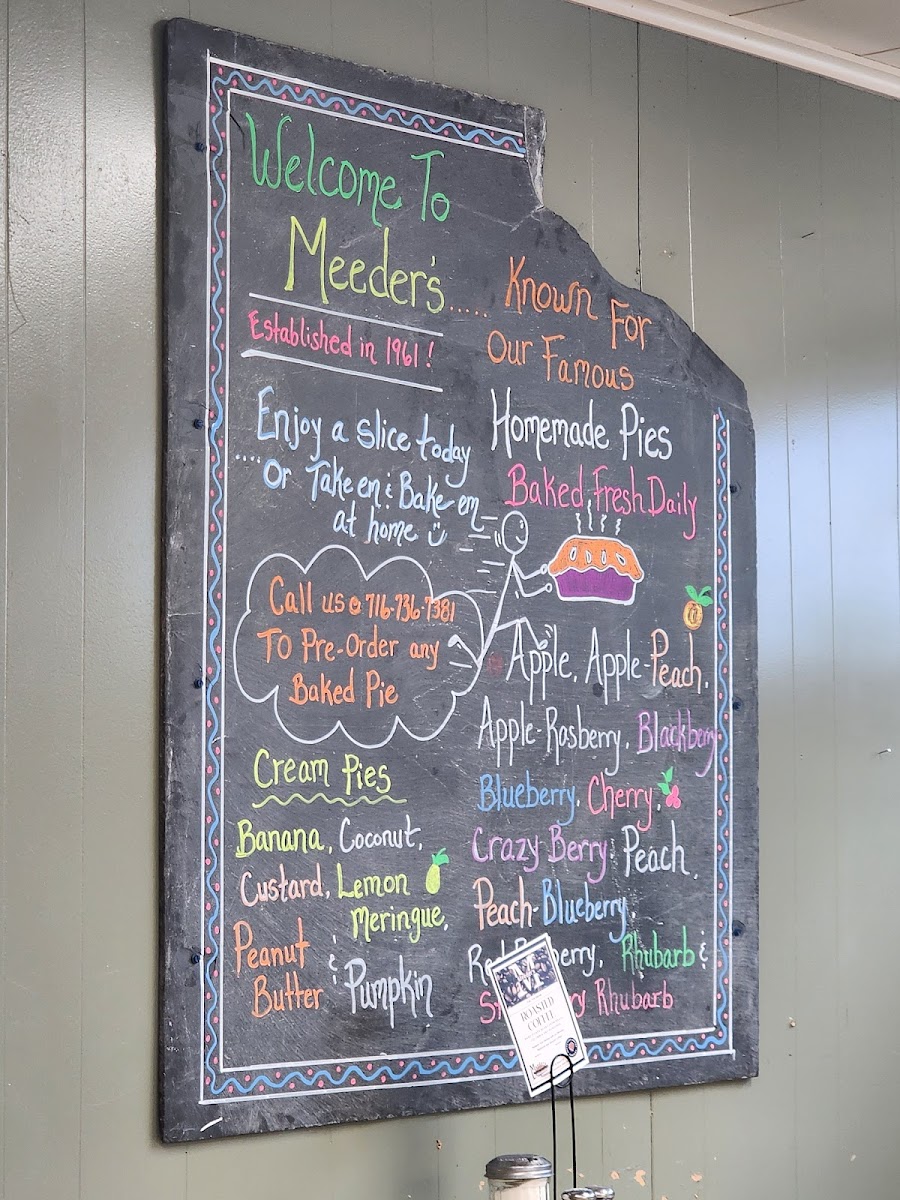 Welcome To
Meeder's.....
Established in 1961!
Known For
Our Famous
Homemade Pies
Baked Fresh Daily
Enjoy a slice today
....Or Take em & Bake em
at home
Call us @ 716-736-7381
To Pre-Order any
Baked Pie
Apple, Apple-Peach,
Apple-Rasberry, Blackberry
Blueberry, Cherry,
Crazy Berry, Peach,
Peach-Blueberry,
Rhubarb &
Rhubarb
Cream Pies
Banana, Coconut,
Custard, Lemon
Meringue,
Peanut
Butter & Pumpkin
ROASTED
COFFEE